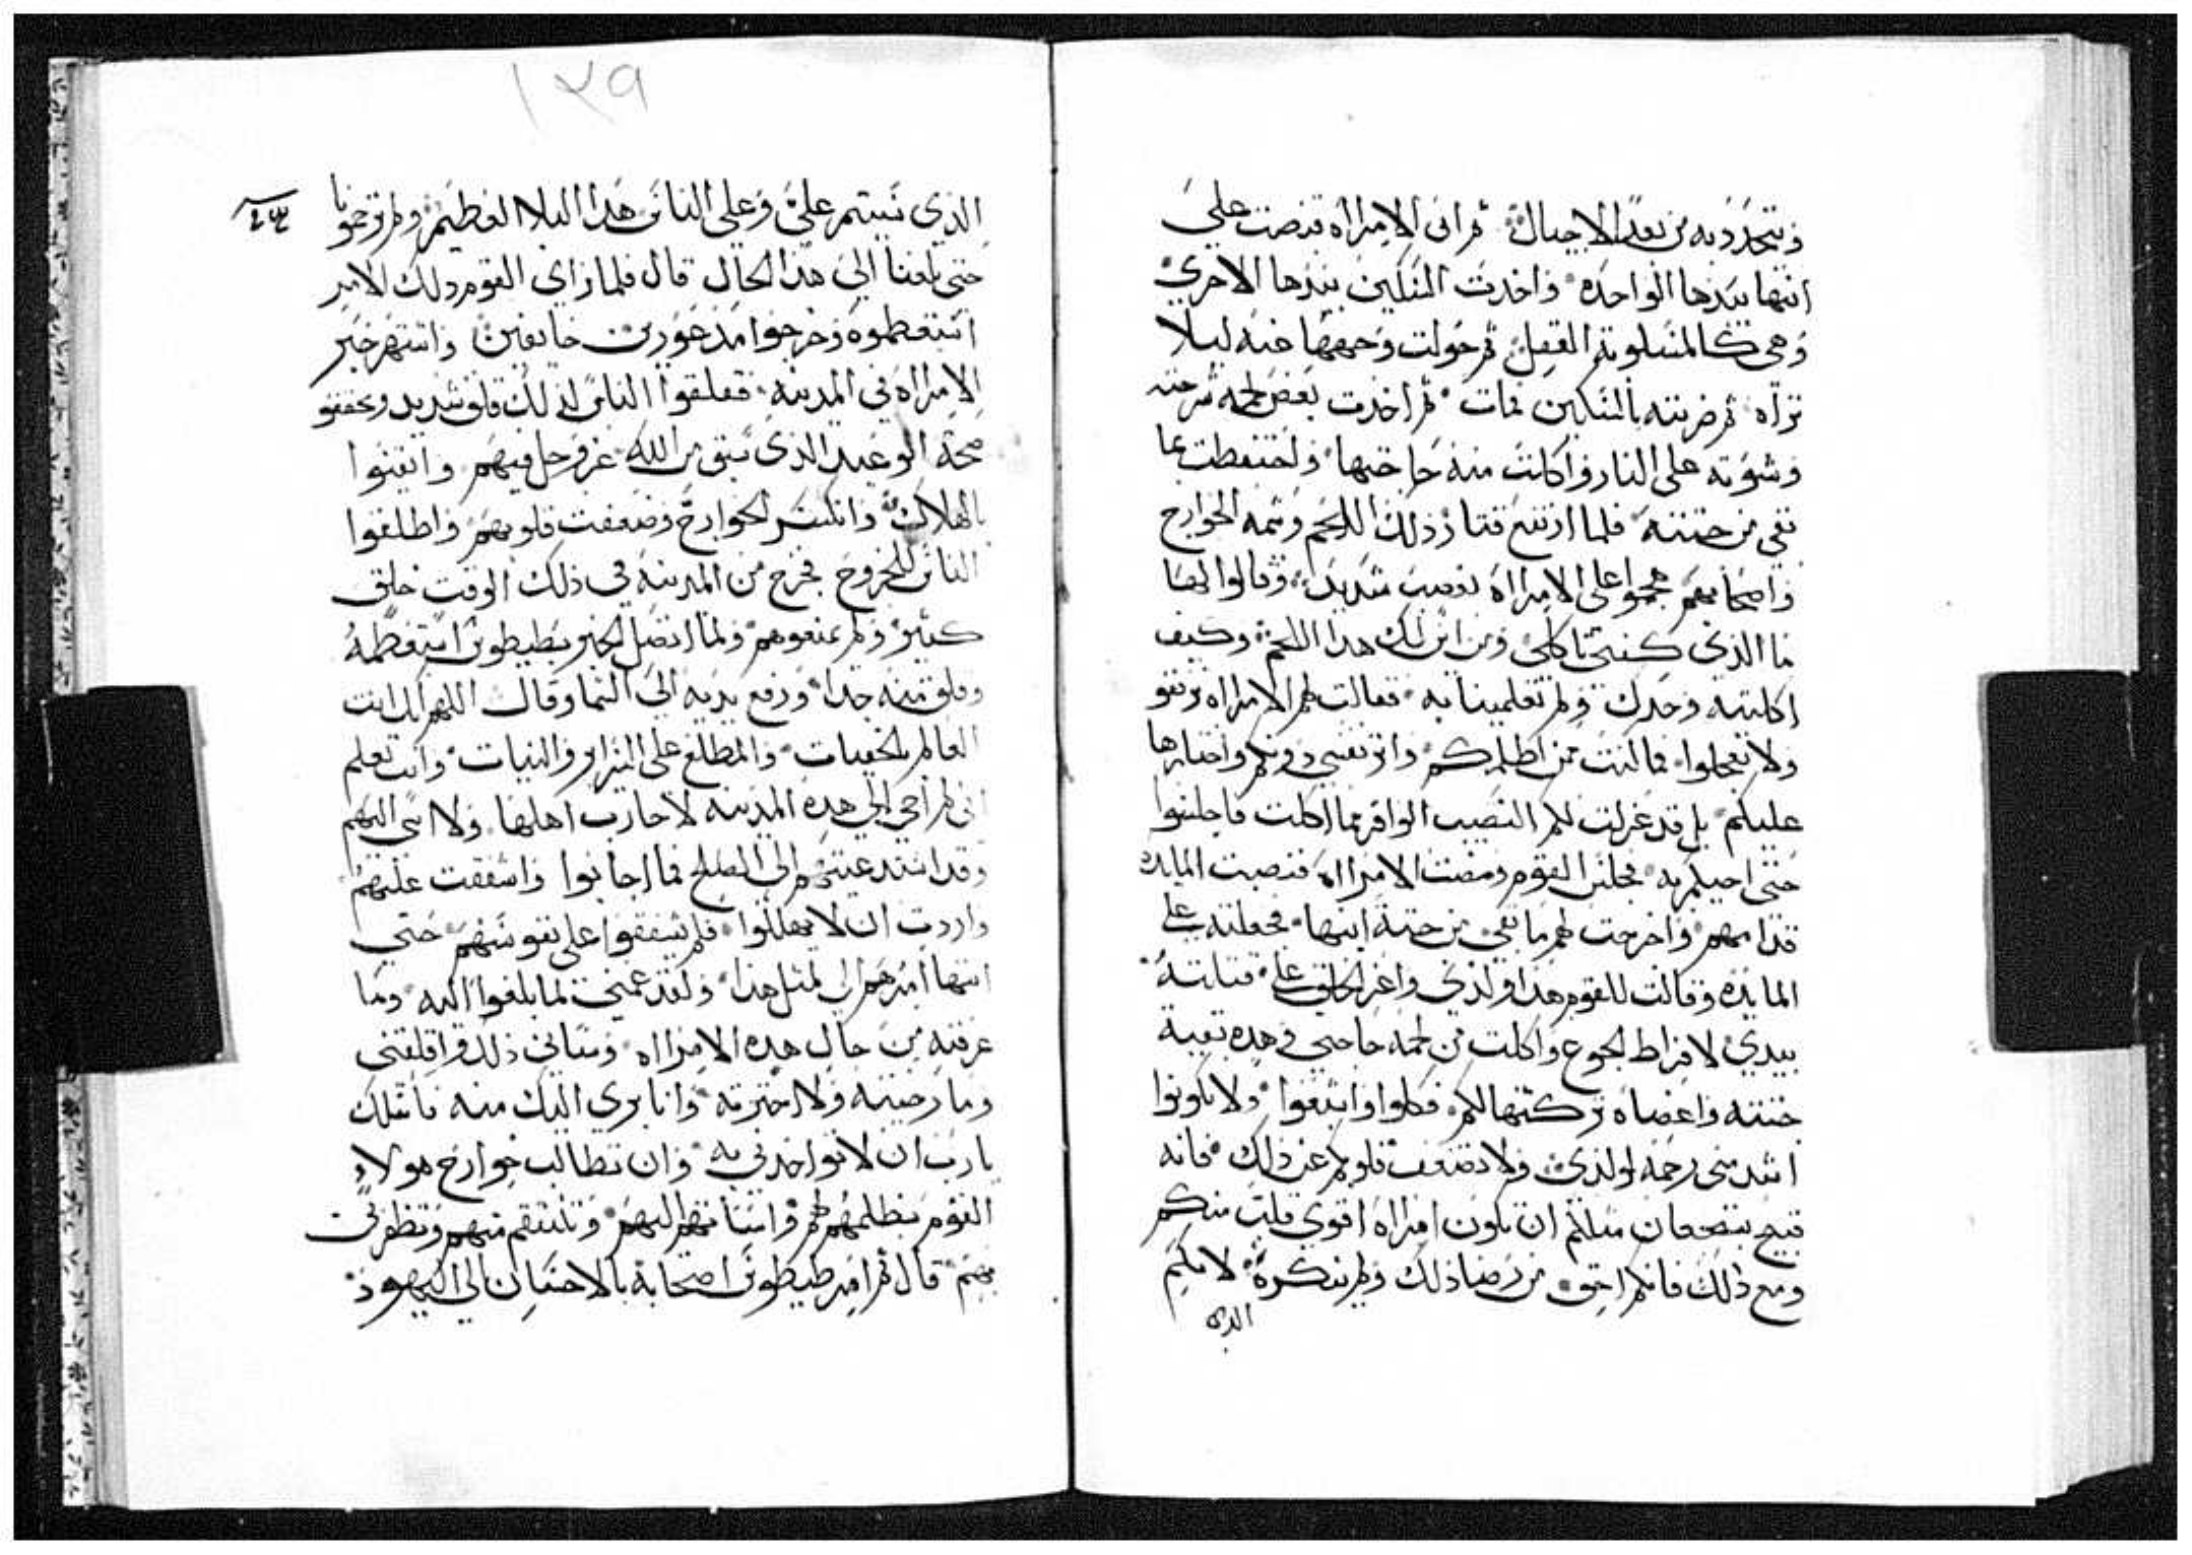 ويتحدد به من بعد الاجيال ثم ان الامراه قبضت علي
ابنها بيدها الواحده واخدت السكين بيدها الاخري
وهي كالمسلوبة العقل ثم حولت وجهها عنه ليلا
تراه ثم ضربته بالسكين فمات ثم اخدت بعض لحمه
وشوته على النار واكلت منه حاجتها واحتفظت بما
بقي من جتته فلما ارتفع قتار ذلك اللحم وشمه الخوارج
واصحابهم هجموا على الامراه بغضب شديد وقالوا لها
ما الذي كنتي تاكلي ومن اين لك هدا اللحم وكيف
اكلتيه وحدك ولم تعلمينا به فقالت لهم الامراه ترفقو
ولا تعجلوا فما لنت ممن اظلمكم واتر نفسي دونكم واختارها
عليكم بل قد عزلت لكم النصيب الوافر مما اكلت فاجلسوا
حتى اجيكم به فجلس القوم ومضت الامراه فنصبت المايده
قدامهم واخرجت لهم ما بقي من جتة ابنها فجعلته على
المايده وقالت للقوم هدا ولدي واعز الخلق علي قتلته
بيدي لافراط الجوع واكلت من لحمه حاجتي وهده بقية
جتته واعضاه تركتها لكم فكلوا واشبعوا ولا تكونوا
اشد مني رحمه لولدي ولا تضعف قلوبكم عن ذلك فانه
قبيح بشجعان متلكم ان تكون امراه اقوي قلب منكم
ومع ذلك فانكم احق من رضا ذلك ولم ينكره لانكم
الدى
١٢٩
الذي سببتم علي وعلى الناس هدا البلا العظيم ولم ترحمونا
حتى بلغنا الى هدا الحال قال فلما راي القوم دلك الامر
استعظموه وخرجوا مدعورين خايفين واشتهر خبر
الامراه في المدينه فقلقوا الناس لدلك قلق شديد وتحققو
صحة الوعيد الذي سبق من الله عز وجل فيهم وايقنوا
بالهلاك وانكسر الخوارج وضعفت قلوبهم واطلقوا
الناس للخروج فخرج من المدينه في ذلك الوقت خلق
كتير ولم يمنعوهم ولما اتصل الخبر بطيطوس استعظمه
وقلق منه جدا ورفع يديه الى السما وقال اللهم انك انت
العالم بالخفيات والمطلع على السراير والنيات وانت تعلم
اني لم اجي الى هده المدينه لاحارب اهلها ولا اسي اليهم
وقد استدعيتهم الى الصلح فما اجابوا واشفقت عليهم
واردت ان لا يهلكوا فلم يشفقوا على نفوسهم حتى
انتها امرهم الى متل هدا ولقد غمني لما بلغوا اليه وما
عرفته من حال هده الامراه وساني ذلك واقلقني
وما رضيته ولا اخترته وانا بري اليك منه فاسلك
يارب ان لا تواخدني به وان تطالب خوارج هولاء
القوم بظلمهم لهم واساتهم اليهم وتنتقم منهم وتظفرني
بهم قال ثم امر طيطوس اصحابه بالاحسان الى اليهود